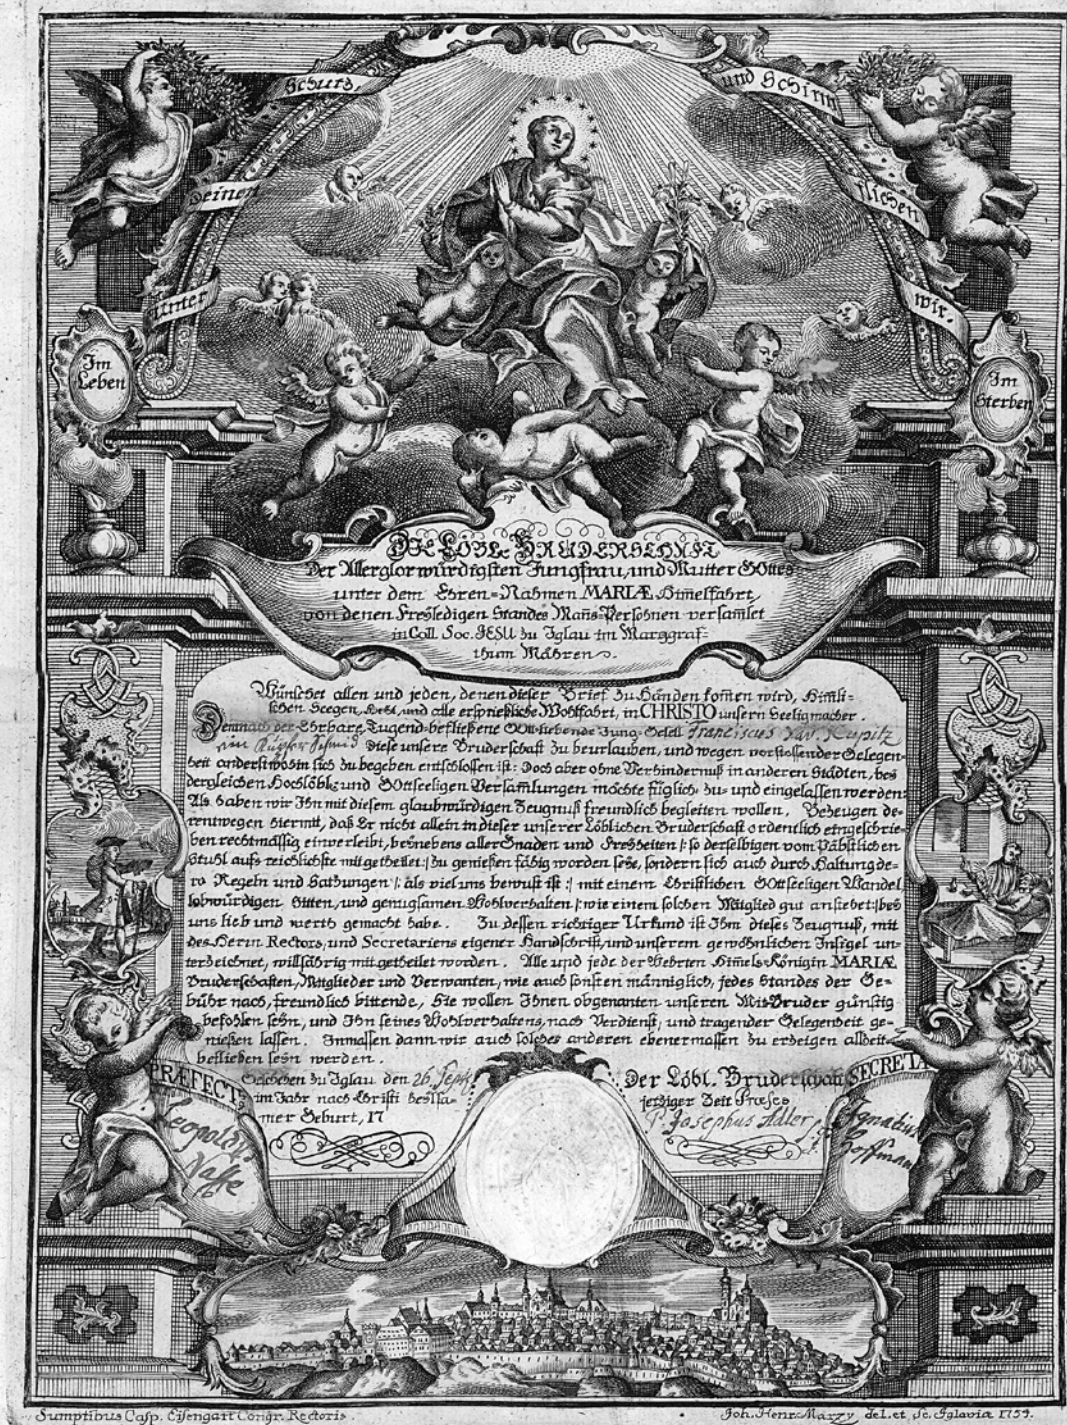 Unter
deinen
Schutz,
und Schirm
fliehen
wir.
Im
Leben
Im
Sterben
Die Löbl. Bruderschaft
Der Allerglorwürdigsten Jungfrau, und Mutter GOttes
unter dem Ehren=Nahmen MARIÆ Himelfahrt,
von denen Freÿledigen Standes Mañs=Persohnen versam̃let
in Coll. Soc. JESU zu Iglau im Marggraf=
thum Mähren.
Wünschet allen und jeden, denen dieser Brief zu Händen kom̃en wird, Him̃li=
schen Seegen, Heÿl, und alle ersprießliche Wohlfahrt, in CHRISTO unsern Seeligmacher.
Demnach der Ehrbare Tugend=befließene GOtt=liebende Jung=Gesell Franciscus Xav. Kupitz
ein Kupfer Schmid diese unsere Bruderschaft zu beurlauben, und wegen vorstossender Gelegen=
heit anderstwohin sich zu begeben entschlossen ist: Doch aber ohne Verhindernuß in anderen Städten, beÿ
dergleichen Hochlöbl: und GOttseeligen Versam̃lungen möchte füglich zu= und eingelassen werden:
Als haben wir Ihn mit diesem glaubwürdigen Zeugnuß freundlich begleiten wollen. Bezeugen de=
rentwegen hiermit, daß Er nicht allein in dieser unserer Löblichen Bruderschaft ordentlich eingeschrie=
ben rechtmässig einverleibt, beÿnebens aller Gnaden und Freÿheiten |: so derselbigen vom Päbstlichen
Stuhl aufs reichlichste mitgetheilet :| zu genießen fähig worden seÿe, sondern sich auch durch Haltung de=
ro Regeln und Satzungen |: als viel uns bewust ist :| mit einem Christlichen GOttseeligen Wandel
lobwürdigen Sitten, und genugsamen Wohlverhalten |: wie einem solchen Mitglied gut anstehet :| beÿ
uns lieb und werth gemacht habe. Zu dessen richtiger Urkund ist Ihm dieses Zeugnuß, mit
des Herrn Rectors, und Secretariens eigener Handschrift, und unserem gewöhnlichen Insigel un=
terzeichnet, willfährig mitgetheilet worden. Alle und jede der Wehrten Himels=Königin MARIÆ
Bruderschaften, Mitglieder und Verwanten, wie auch sonsten männiglich, jedes Standes der Ge=
bühr nach, freundlich bittende, Sie wollen Ihnen obgenanten unseren Mit=Bruder günstig
befohlen seÿn, und Ihn seines Wohlverhaltens, nach Verdienst, und tragender Gelegenheit ge=
nießen lassen. Inmassen dann wir auch solches anderen ebenermassen zu erzeigen allzeit
befließen seÿn werden.
PRÆFECT9
Leopoldus
Nasse
Geschehen zu Iglau den 26. Sept:
im Jahr nach Christi heÿlsa=
mer Geburt, 17
Der Löbl. Bruderschaft
jetziger Zeit Præses
P. Josephus Adler
SECRETA
Ignatius
Hoffman
Sumptibus Casp. Eisengart Congr. Rectoris.
Joh. Henr. Marzy del. et Sc. Iglaviæ 1754.